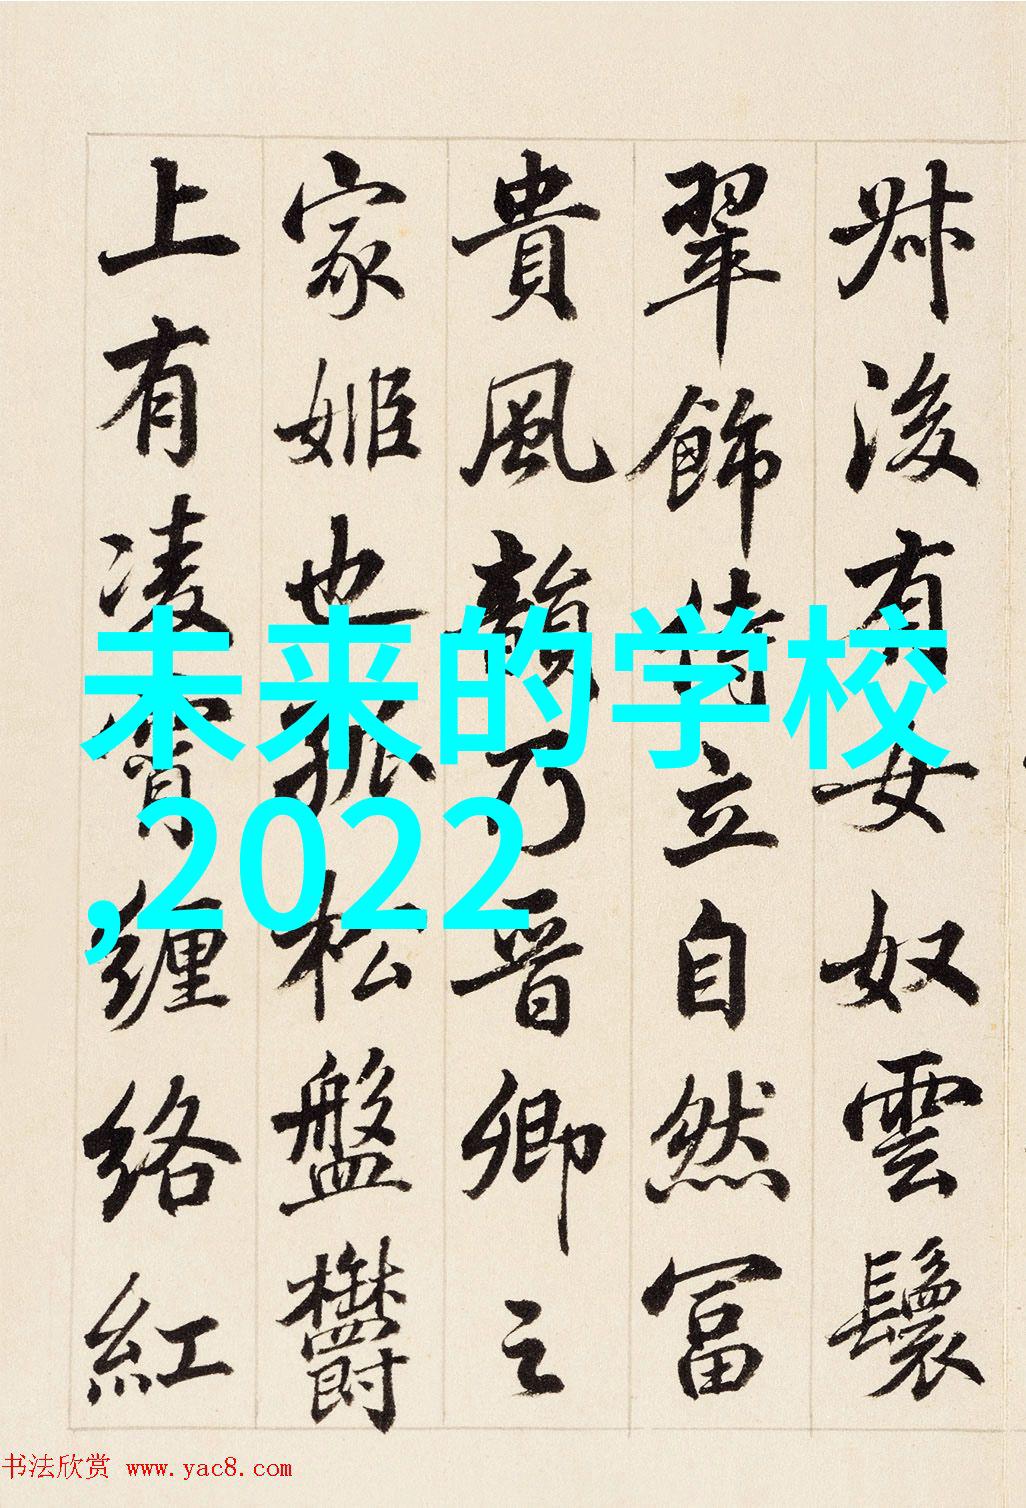 叔後有女奴雲鬟
翠飾侍立自然冨
貴風韻乃晋卿之
家姬也孤松盤欝
上有凌霄纏絡紅
未来的学校
,2022
书法欣赏 www.yac8.com